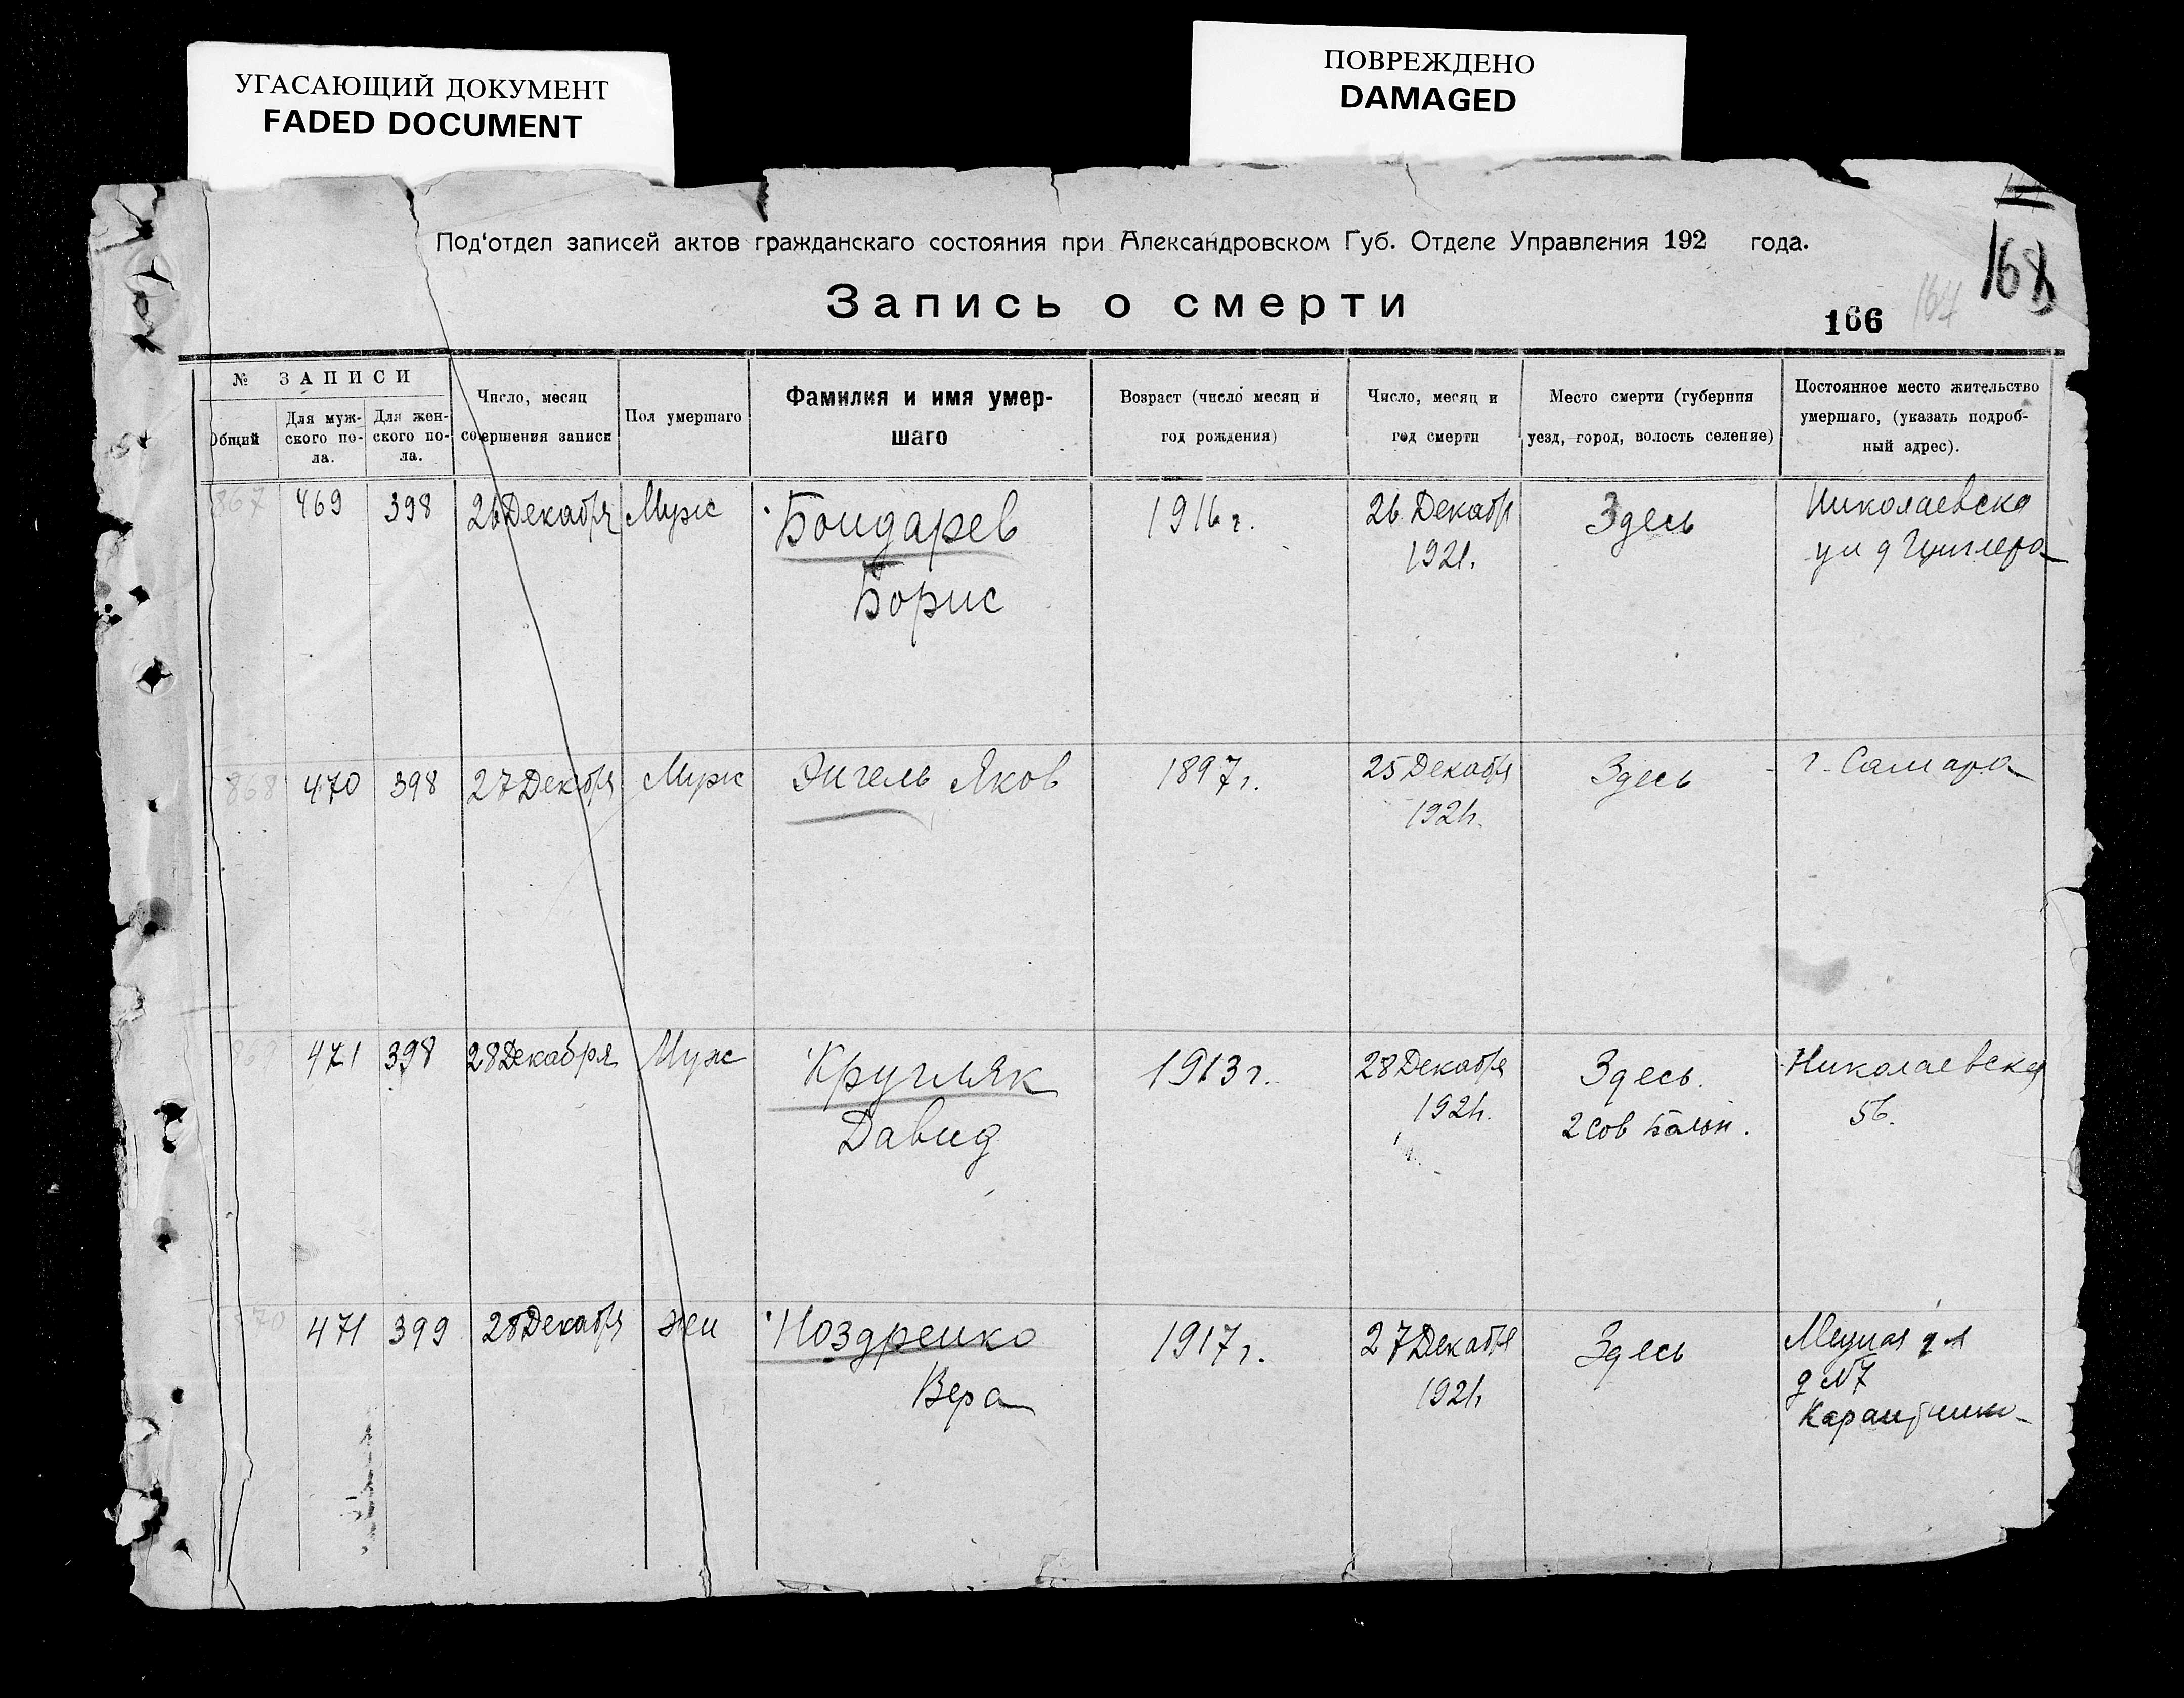 УГАСАЮЩИЙ ДОКУМЕНТ
FADED DOCUMENT
ПОВРЕЖДЕНО
DAMAGED
168
Под'отдел записей актов гражданскаго состояния при Александровском Губ. Отделе Управления 192 года.
Запись о смерти
166 164
№ ЗАПИСИ
Общий
Для муж-
ского по-
ла.
Для жен-
ского по-
ла.
Число, месяц
совершения записи
Пол умершаго
Фамилия и имя умер-
шаго
Возраст (число месяц и
год рождения)
Число, месяц и
год смерти
Место смерти (губерния
уезд, город, волость селение)
Постоянное место жительство
умершаго, (указать подроб-
ный адрес).
867 469 398 26 Декабря Муж Бондарев 1916 г. 26. Декабр Здесь Николаевска
Борис 1921. ул д
868 470 398 27 Декабря Муж Энгель Яков 1897 г. 25 Декабря Здесь г. Самара
1921г.
869 471 398 28 Декабря Муж Кругляк 1913 г. 28 Декабря Здесь. Николаевска
Давид 1921г. 2 Сов Больн. 56.
870 471 399 28 Декабря Жен Ноздренко 1917 г. 27 Декабря Здесь
Вера 1921г. д №7